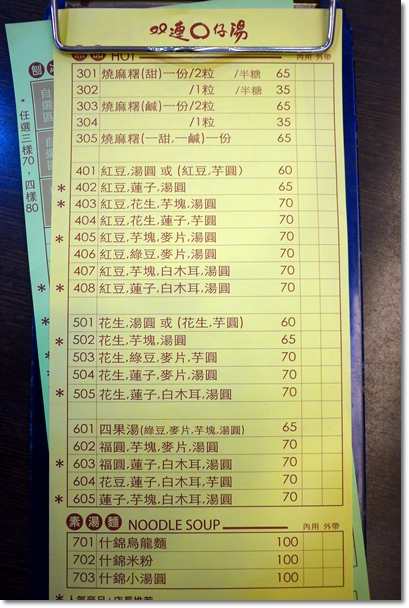 双連〇仔湯
HOT 內用 外帶
301 燒麻糬(甜)一份/2粒 /半糖 65
302 /1粒 /半糖 35
303 燒麻糬(鹹)一份/2粒 65
304 /1粒 35
305 燒麻糬(一甜,一鹹)一份 65
401 紅豆,湯圓 或 (紅豆,芋圓) 60
* 402 紅豆,蓮子,湯圓 65
* 403 紅豆,花生,芋塊,湯圓 70
404 紅豆,花生,蓮子,芋圓 70
* 405 紅豆,芋塊,麥片,湯圓 70
406 紅豆,綠豆,麥片,湯圓 70
407 紅豆,芋塊,白木耳,湯圓 70
* 408 紅豆,蓮子,白木耳,湯圓 70
501 花生,湯圓 或 (花生,芋圓) 60
* 502 花生,芋塊,湯圓 65
503 花生,綠豆,麥片,芋圓 70
504 花生,蓮子,麥片,湯圓 70
* 505 花生,蓮子,白木耳,湯圓 70
601 四果湯(綠豆,麥片,芋塊,湯圓) 65
602 福圓,芋塊,麥片,湯圓 70
* 603 福圓,蓮子,白木耳,湯圓 70
604 花豆,蓮子,白木耳,芋圓 70
* 605 蓮子,芋塊,白木耳,湯圓 70
素湯麵 NOODLE SOUP 內用 外帶
701 什錦烏龍麵 100
702 什錦米粉 100
703 什錦小湯圓 100
* 人氣商品:店長推薦
刨
自選區
自選區
* 任選三樣70,四樣80